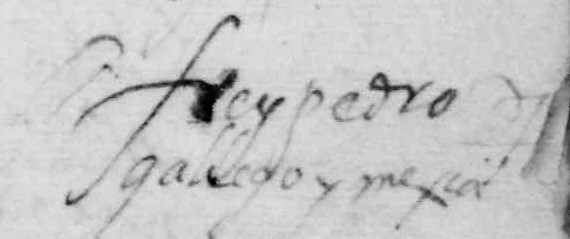 frey pedro
gallego y mexia